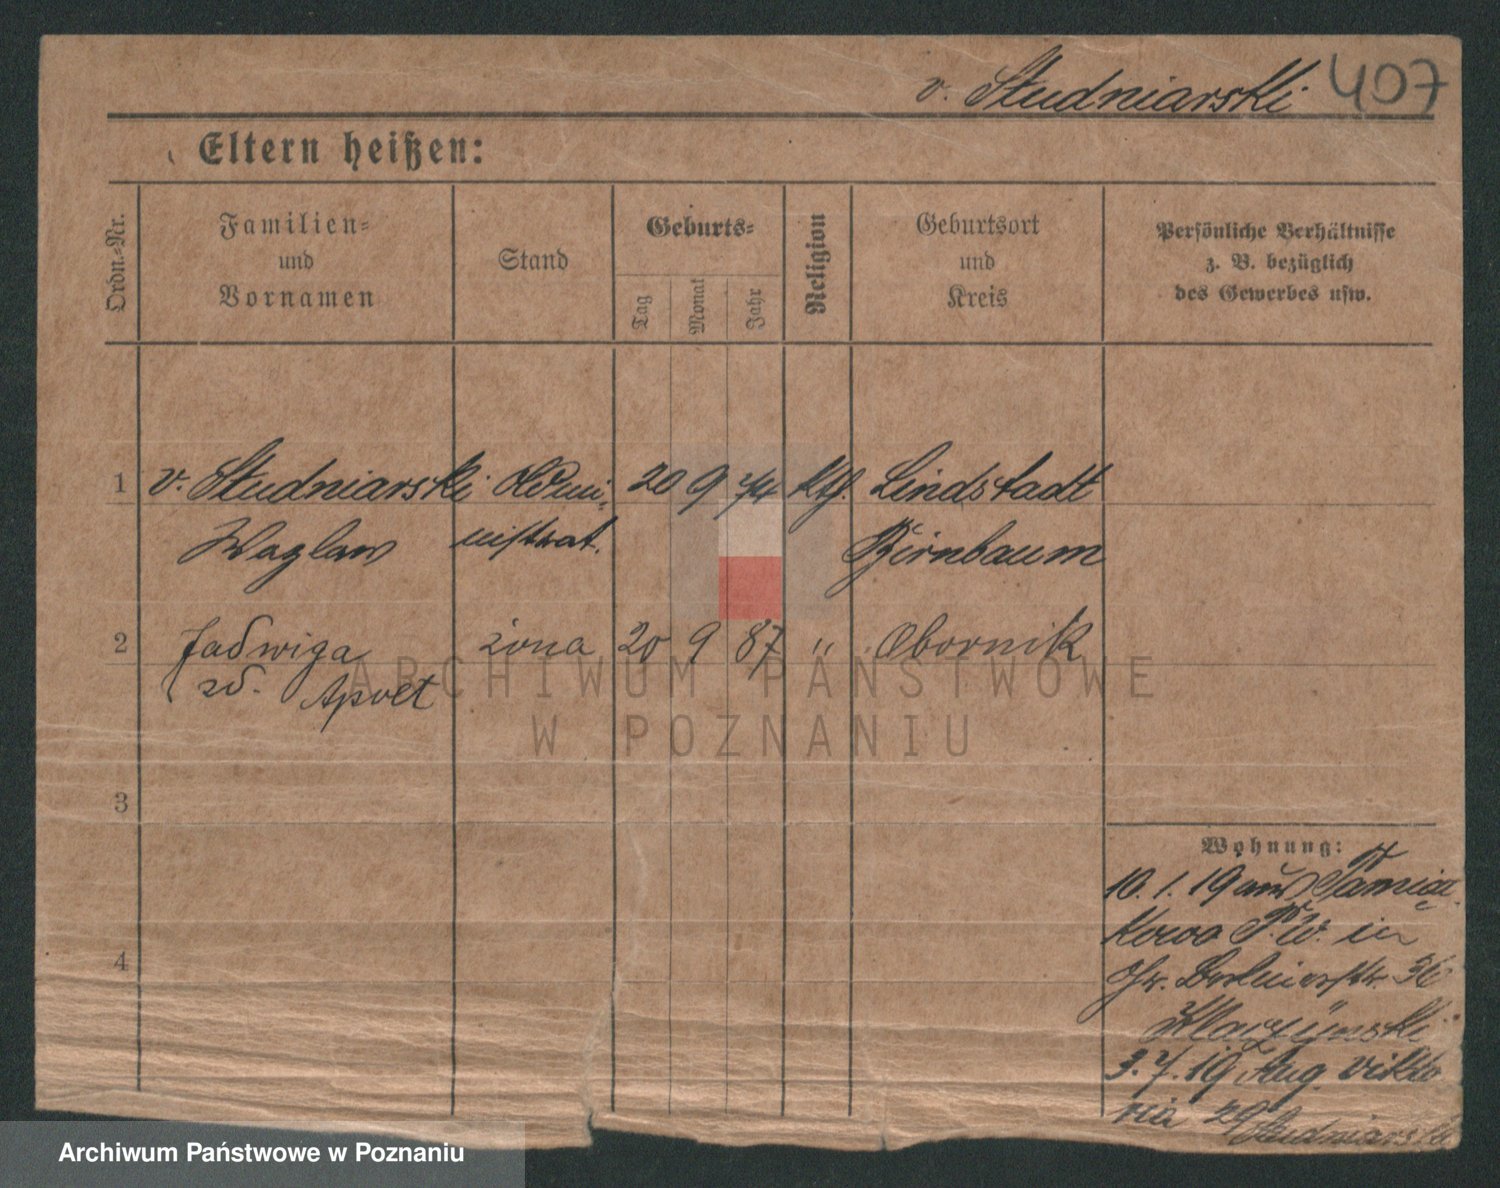 v. Studniarski 407
Eltern heißen:
Ordn.-Nr.
Familien-
und
Vornamen
Stand
Geburts-
Tag
Monat
Jahr
Religion
Geburtsort
und
Kreis
Persönliche Verhältnisse
z. B. bezüglich
des Gewerbes usw.
1 v. Studniarski Admi- 20 9 74 kth. Lindstadt
Waglaw nistrat. Birnbaum
2 Jadwiga żona 20 9 87 " Obornik
zd.
3
Wohnung:
10. 1. 19 aus
P.W. in
4
Gr. Berlinerstr. 36
3. 7. 19 Aug. Vikto
ria 29 Studniarski
ARCHIWUM PAŃSTWOWE
W POZNANIU
Archiwum Państwowe w Poznaniu